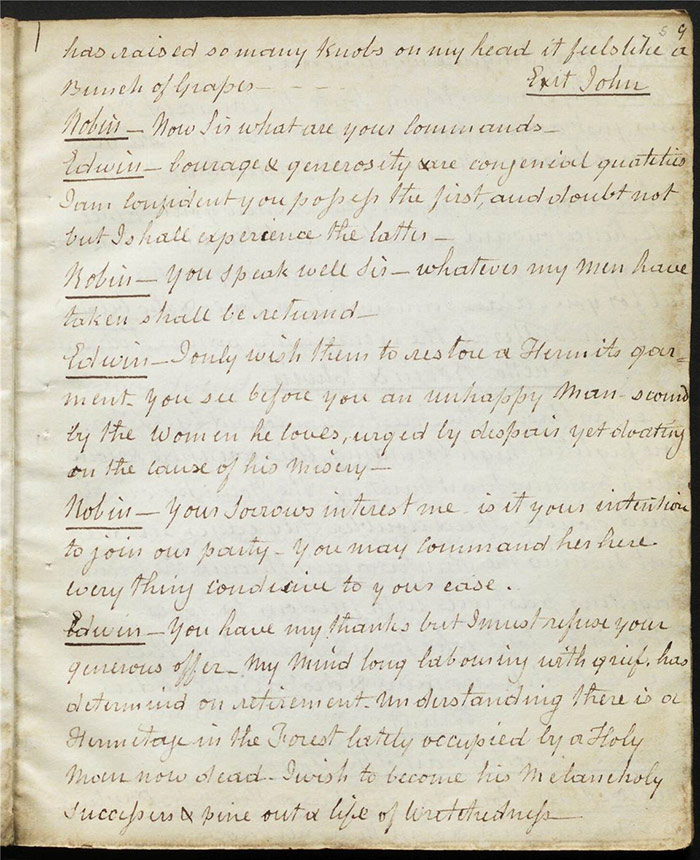 5 9
has raised so many Knobs on my head it feels like a
Bunch of Grapes - - - - Exit John
Robin — Now Sir what are your Commands —
Edwin — Courage & generosity are congenial qualities
I am confident you possess the first, and doubt not
but I shall experience the latter —
Robin — You speak well Sir — whatever my Men have
taken shall be returnd —
Edwin — I only wish them to restore a Hermits gar=
ment - You see before you an unhappy Man - scornd
by the Women he loves, urged by despair yet doating
on the cause of his Misery —
Robin — Your Sorrows interest me - is it your intention
to join our party - You may command her here
everything conducive to your ease .
Edwin — You have my thanks but I must refuse your
generous offer - My Mind long labouring with grief, has
determind on retirement - Understanding there is a
Hermitage in the Forest lately occupied by a Holy
Man now dead - I wish to become his Melancholy
Successers & pine out a life of Wretchedness —